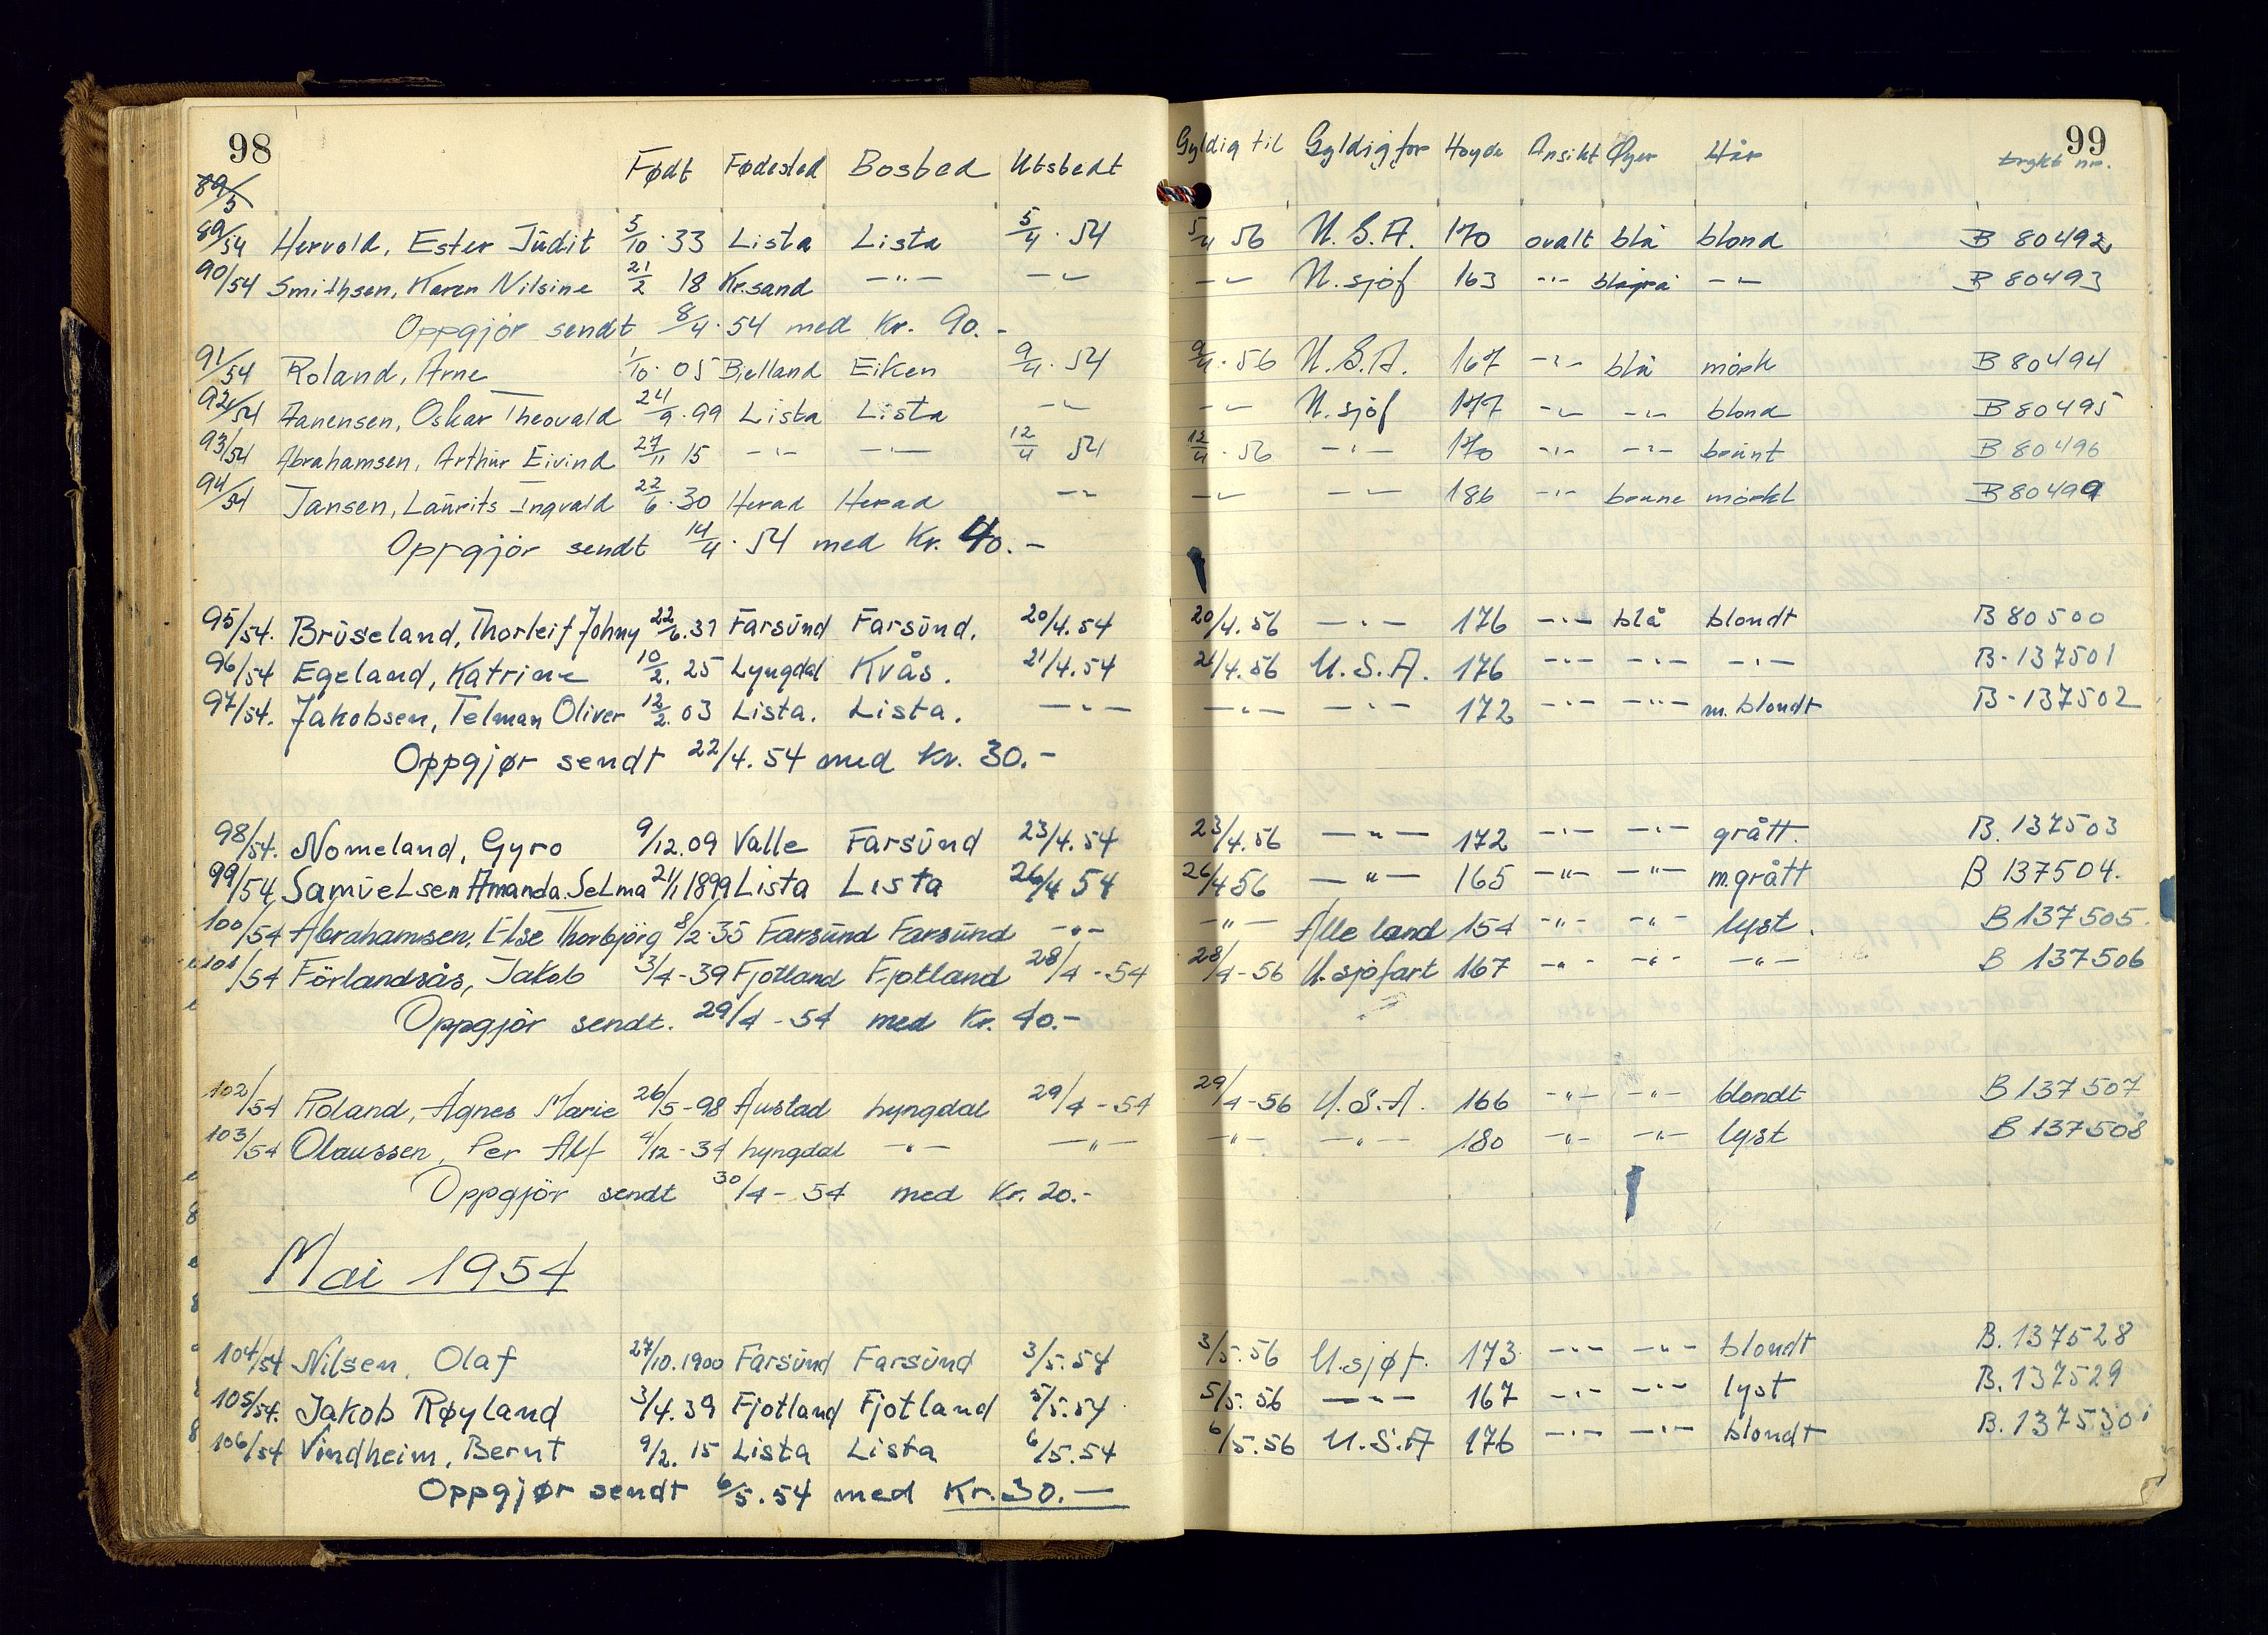 98
99
Født Fødested Bosted Utstedt Gyldig til Gyldig for Høyde Ansikt Øyer Hår trykt nr.
89/5
89/54 Hervold, Ester Judit 5/10.33 Lista Lista 5/4.54 5/4 56 U.S.A. 170 ovalt blå blond B 80492
90/54 Smithsen, Karen Nilsine 21/2 18 Kr.sand -"- -"- -"- U.sjöf 163 -"- blågrå -"- B 80493
Oppgjör sendt 8/4.54 med Kr. 90.-
91/54 Roland, Arne 1/10.05 Bjelland Eiken 9/4.54 9/4.56 U.S.A. 167 -"- blå mörk B 80494
92/54 Aanensen, Oskar Theovald 24/9.99 Lista Lista -"- -"- U.sjöf 177 -"- -"- blond B 80495
93/54 Abrahamsen, Arthur Eivind 27/11 15 -"- -"- 12/4 54 12/4.56 -"- 170 -"- -"- brunt B 80496
94/54 Jansen, Laurits Ingvald 22/6.30 Herad Herad -"- -"- -"- 186 -"- brune mörkt B 80499
Oppgjör sendt 14/4.54 med Kr. 40.-
95/54. Bruseland, Thorleif Johny 22/6.31 Farsund Farsund. 20/4.54 20/4.56 -"- 176 -"- blå blondt B 80500
96/54 Egeland, Katrine 10/2.25 Lyngdal Kvås. 21/4.54 21/4.56 U.S.A. 176 -"- -"- -"- B-137501
97/54. Jakobsen, Telman Oliver 12/2.03 Lista. Lista. -"- -"- -"- 172 -"- -"- m.blondt B-137502
Oppgjør sendt 22/4.54 med Kr. 30.-
98/54. Nomeland, Gyro 9/12.09 Valle Farsund 23/4.54 23/4.56 -"- 172 -"- -"- grått. B. 137503
99/54 Samuelsen Amanda Selma 21/1 1899 Lista Lista 26/4 54 26/4 56 -"- 165 -"- -"- m.grått B 137504.
100/54 Abrahamsen, Else Thorbjörg 8/2.35 Farsund Farsund -"- -"- Alle land 154 -"- -"- lyst. B 137505.
101/54 Förlandsås, Jakob 3/4-39 Fjotland Fjotland 28/4-54 28/4-56 U.sjöfart 167 -"- -"- -"- B 137506
Oppgjör sendt. 29/4-54 med Kr. 40.-
102/54 Roland, Agnes Marie 26/5-98 Austad Lyngdal 29/4-54 29/4-56 U.S.A. 166 -"- -"- blondt B 137507
103/54 Olaussen, Per Alf 4/12-34 Lyngdal -"- -"- -"- -"- 180 -"- -"- lyst B 137508
Oppgjör sendt 30/4-54 med Kr. 20.-
Mai 1954
104/54 Nilsen, Olaf 27/10.1900 Farsund Farsund 3/5.54 3/5.56 U.sjøf. 173 -"- -"- blondt B. 137528
105/54. Jakob Røyland 3/4.39 Fjotland Fjotland 5/5.54 5/5.56 -"- 167 -"- -"- lyst B. 137529
106/54 Vindheim, Bernt 9/2.15 Lista Lista 6/5.54 6/5.56 U.S.A 176 -"- -"- blondt B. 137530
Oppgjør sendt 6/5.54 med Kr. 30.-